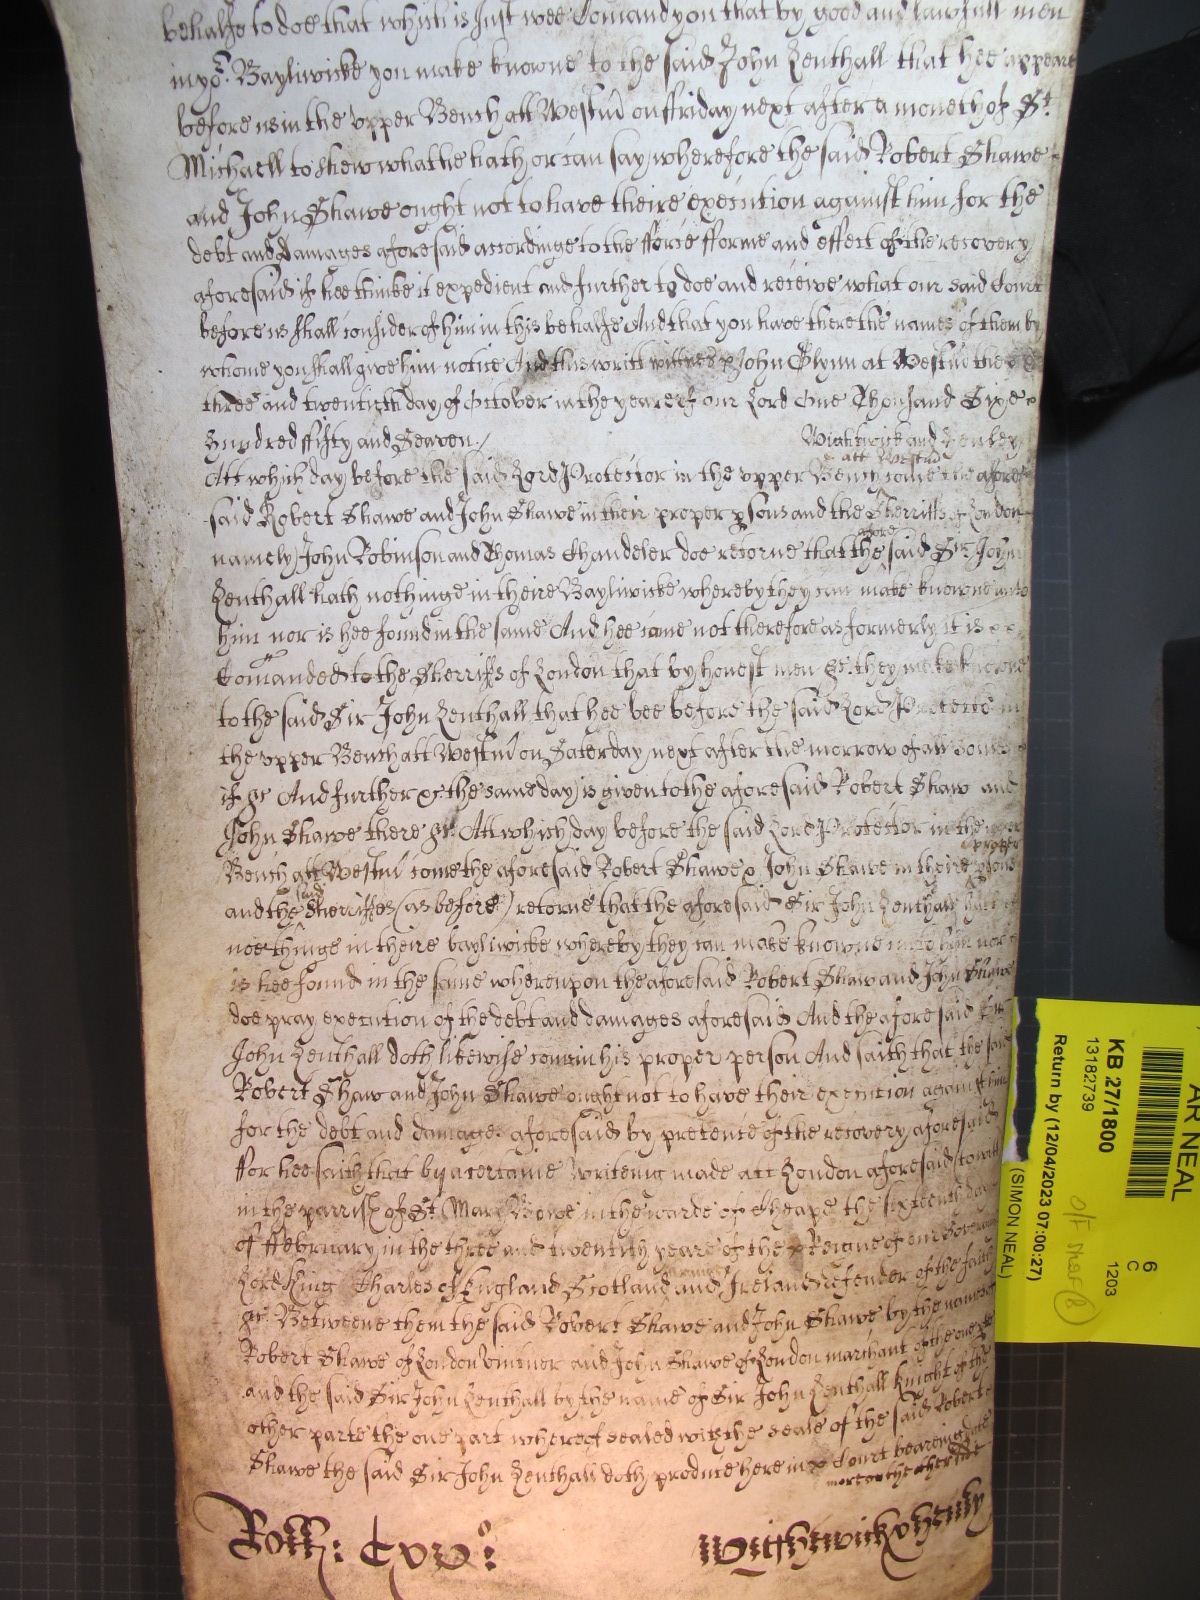 behalfe to doe that which is Just wee Comand you that by good and lawfull men
in yor. Bayliwicke you make knowne to the said John Lenthall that hee appeare
before us in the upper Bench att Westm on ffriday next after a moneth of St.
Michaell to shew what he hath or can say wherefore the said Robert Shawe
and John Shawe ought not to have theire execution against him for the
debt and damages aforesaid accordinge to the force fforme and effect of the recovery
aforesaid if hee thinke it expedient and further to doe and receive what our said Court
before us shall consider of him in this behalfe And that you have there the names of them by
whome you shall give him notice And this writt wittnes John Glynn at Westm the
three and twentieth day of October in the yeare of our Lord One Thousand Sixe
Hundred ffifty and Seaven./
Wightwick and Henley
att Westm
Att which day before the said Lord Protector in the upper Bench come the afore
said Robert Shawe and John Shawe in their proper psons and the Sherriffs of London
afore
namely John Robinson and Thomas Chandeler doe retorne that the said Sr. John
Lenthall hath nothinge in theire Bayliwicke whereby they can make knowne unto
him nor is hee found in the same And hee came not therefore as formerly it is
Comanded to the Sherriffs of London that by honest men &c. they make knowne
to the said Sir John Lenthall that hee bee before the said Lord Protector in
the upper Bench att Westm on Saterday next after the morrow of all Soules
if &c And further &c the same day is given to the aforesaid Robert Shaw and
John Shawe there &c. Att which day before the said Lord Protector in the upper
proper
Bench att Westm come the aforesaid Robert Shawe & John Shawe in theire psons
said
and the Sherriffes (as before) retorne that the aforesaid Sir John Lenthall hath
noethinge in theire bayliwicke whereby they can make knowne unto him nor
is hee found in the same whereupon the aforesaid Robert Shaw and John Shawe
doe pray execution of the debt and damages aforesaid And the aforesaid Sir
John Lenthall doth likewise come in his proper person And saith that the said
Robert Shaw and John Shawe ought not to have their execution against him
for the debt and damages aforesaid by pretence of the recovery aforesaid
ffor hee saith that by a certaine Writeing made att London aforesaid to witt
in the parrish of St. Mary Bowe in the warde of Cheape the sixteenth day
of ffebruary in the three and twentith yeare of the Reigne of our Soveraigne
Lord King Charles of England Scotland and Ireland defender of the faith
&c. Betweene them the said Robert Shawe and John Shawe by the names of
Robert Shawe of London Vintner and John Shawe of London marchant of the one pte
and the said Sir John Lenthall by the name of Sir John Lenthall Knight of the
other parte the one part whereof sealed with the seale of the said Robert
Shawe the said Sir John Lenthall doth produce here in Court beareing date
more on the other side
Rott: Cxvo:
Wightwick & Henley
KB 27/1800
13182739
Return by (12/04/2023 07:00:27)
(SIMON NEAL)
AR NEAL
6
C
1203